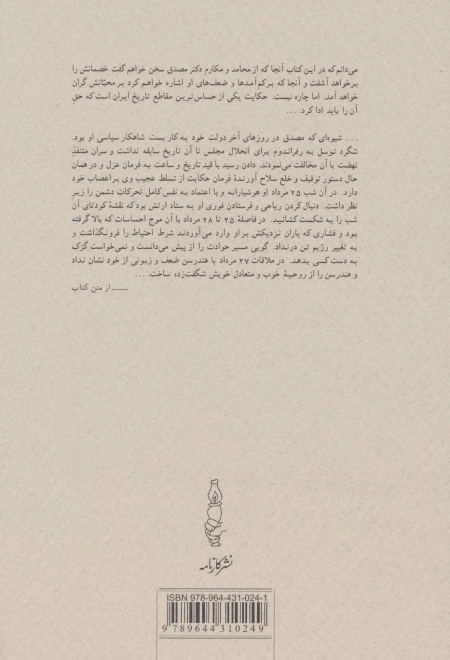 می‌دانم که در این کتاب آنجا که از محامد و مکارم دکتر مصدق سخن خواهم گفت خصمانش را
برخواهد آشفت و آنجا که بر کم‌آمدها و ضعف‌های او اشاره خواهم کرد بر محبّانش گران
خواهد آمد. اما چاره نیست. حکایت یکی از حساس‌ترین مقاطع تاریخ ایران است که حق
آن را باید ادا کرد. ...
... شیوه‌ای که مصدق در روزهای آخر دولت خود به کار بست شاهکار سیاسی او بود.
شگرد توسل به رفراندوم برای انحلال مجلس تا آن تاریخ سابقه نداشت و سران متنفّذ
نهضت با آن مخالفت می‌نمودند. دادن رسید با قید تاریخ و ساعت به فرمان عزل و در همان
حال دستور توقیف و خلع سلاح آورندهٔ فرمان حکایت از تسلط عجیب وی بر اعصاب خود
دارد. در آن شب ۲۵ مرداد او هوشیارانه و با اعتماد به نفس کامل تحرکات دشمن را زیر
نظر داشت. دنبال کردن ریاحی و فرستادن فوری او به ستاد ارتش بود که نقشهٔ کودتای آن
شب را به شکست کشانید. در فاصلهٔ ۲۵ تا ۲۸ مرداد با آن موج احساسات که بالا گرفته
بود و فشاری که یاران نزدیکش بر او وارد می‌آوردند شرط احتیاط را فرونگذاشت و
به تغییر رژیم تن درنداد. گویی مسیر حوادث را از پیش می‌دانست و نمی‌خواست گزک
به دست کسی بدهد. در ملاقات ۲۷ مرداد با هندرسن ضعف و زبونی از خود نشان نداد
و هندرسن را از روحیهٔ خوب و متعادل خویش شگفت‌زده ساخت. ...
— از متن کتاب
نشر کارنامه
ISBN 978-964-431-024-1
9 789644 310249